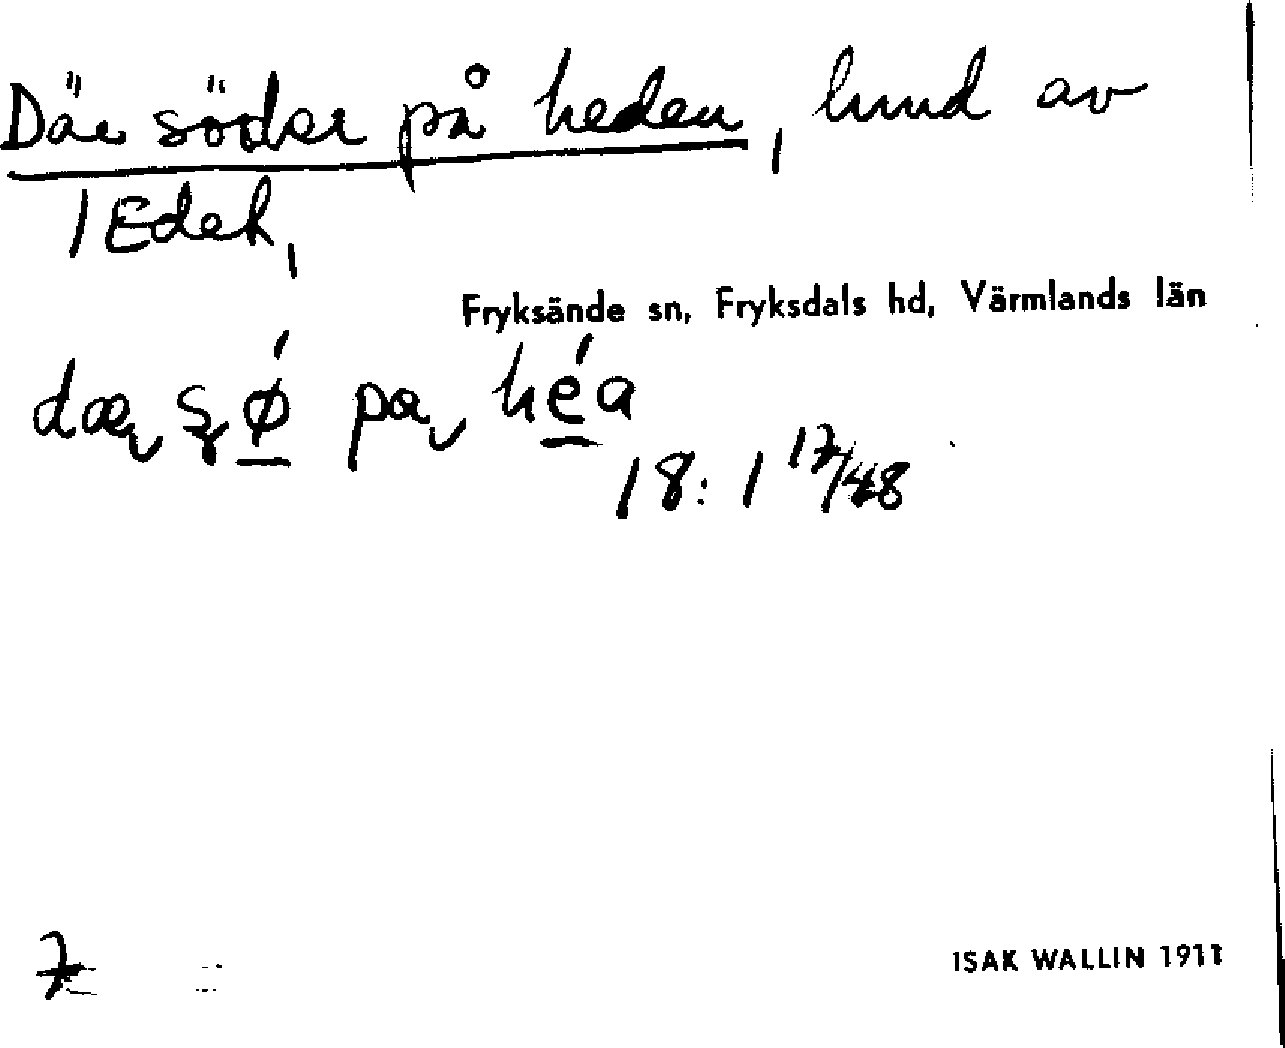 Där söder på heden, hmd av
1 Edeh,
Fryksände sn, Fryksdals hd, Värmlands län
dæ sǿ pa héa
18:1 17/48
7
ISAK WALLIN 1911